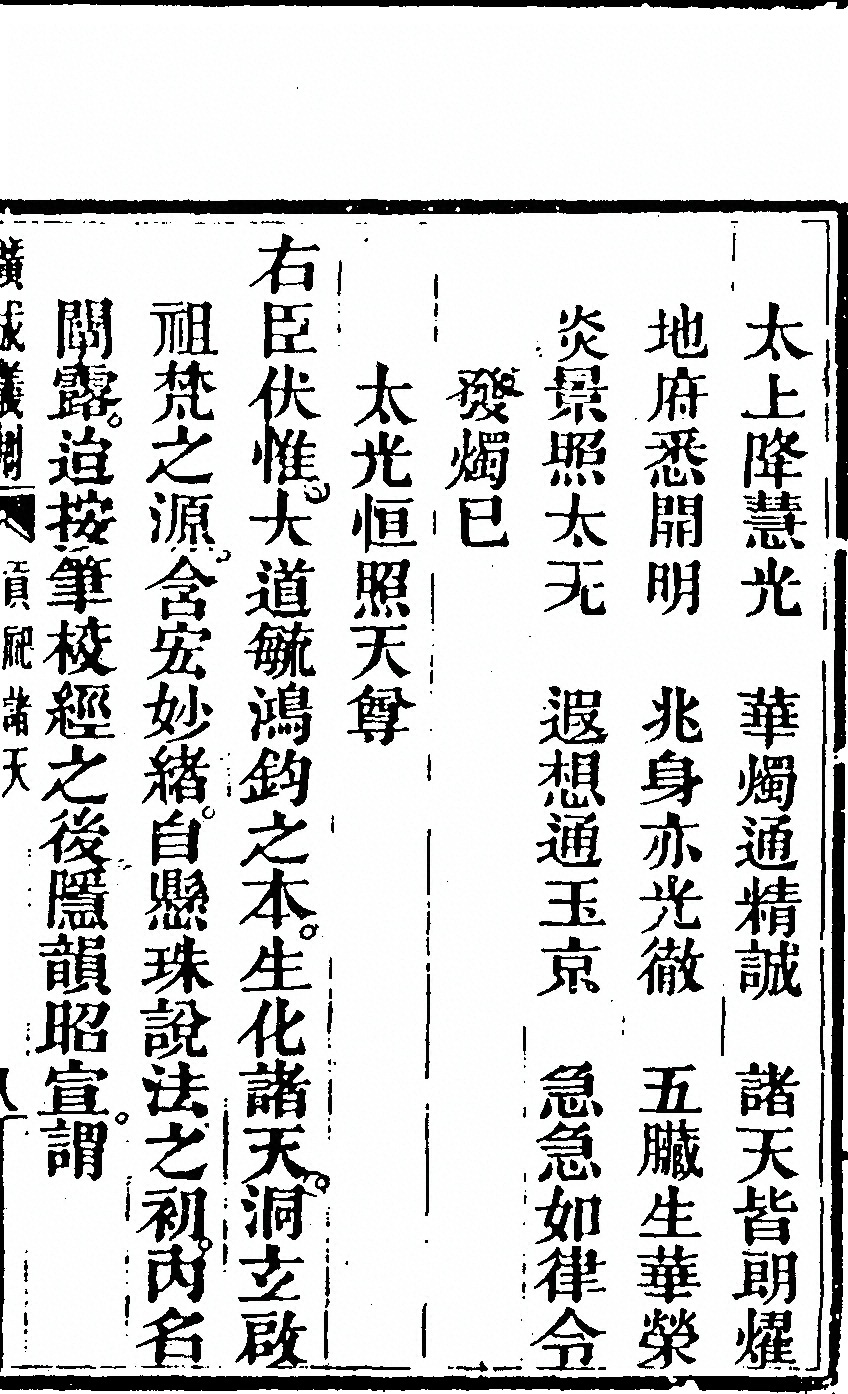 太上降慧光　華燭通精誠　諸天皆朗燿
地府悉開明　兆身亦光徹　五臟生華榮
炎景照太无　遐想通玉京　急急如律令
發燭已
太光恒照天尊
右臣伏惟大道毓鴻鈞之本。生化諸天。洞立啟
祖梵之源。含宏妙緒。自懸珠說法之初。內名
闡露。迨按筆校經之後隱韻昭宣。謂
廣成儀制　貢祀諸天